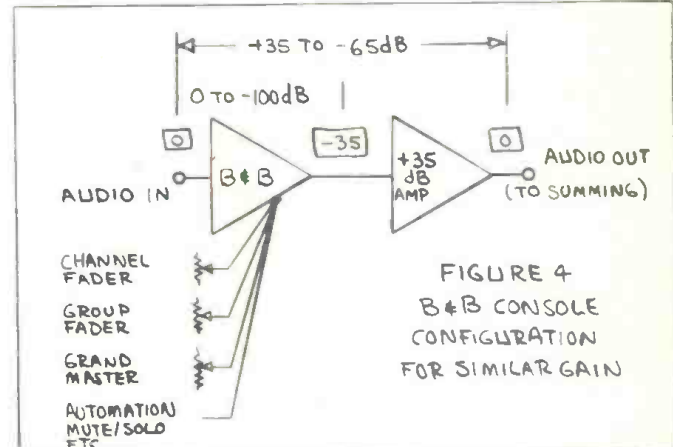 +35 TO -65dB
0 TO -100dB
0
-35
0
B&B
+35
dB
AMP
AUDIO IN
AUDIO OUT
(TO SUMMING)
CHANNEL
FADER
GROUP
FADER
GRAND
MASTER
AUTOMATION
MUTE/SOLO
ETC
FIGURE 4
B&B CONSOLE
CONFIGURATION
FOR SIMILAR GAIN